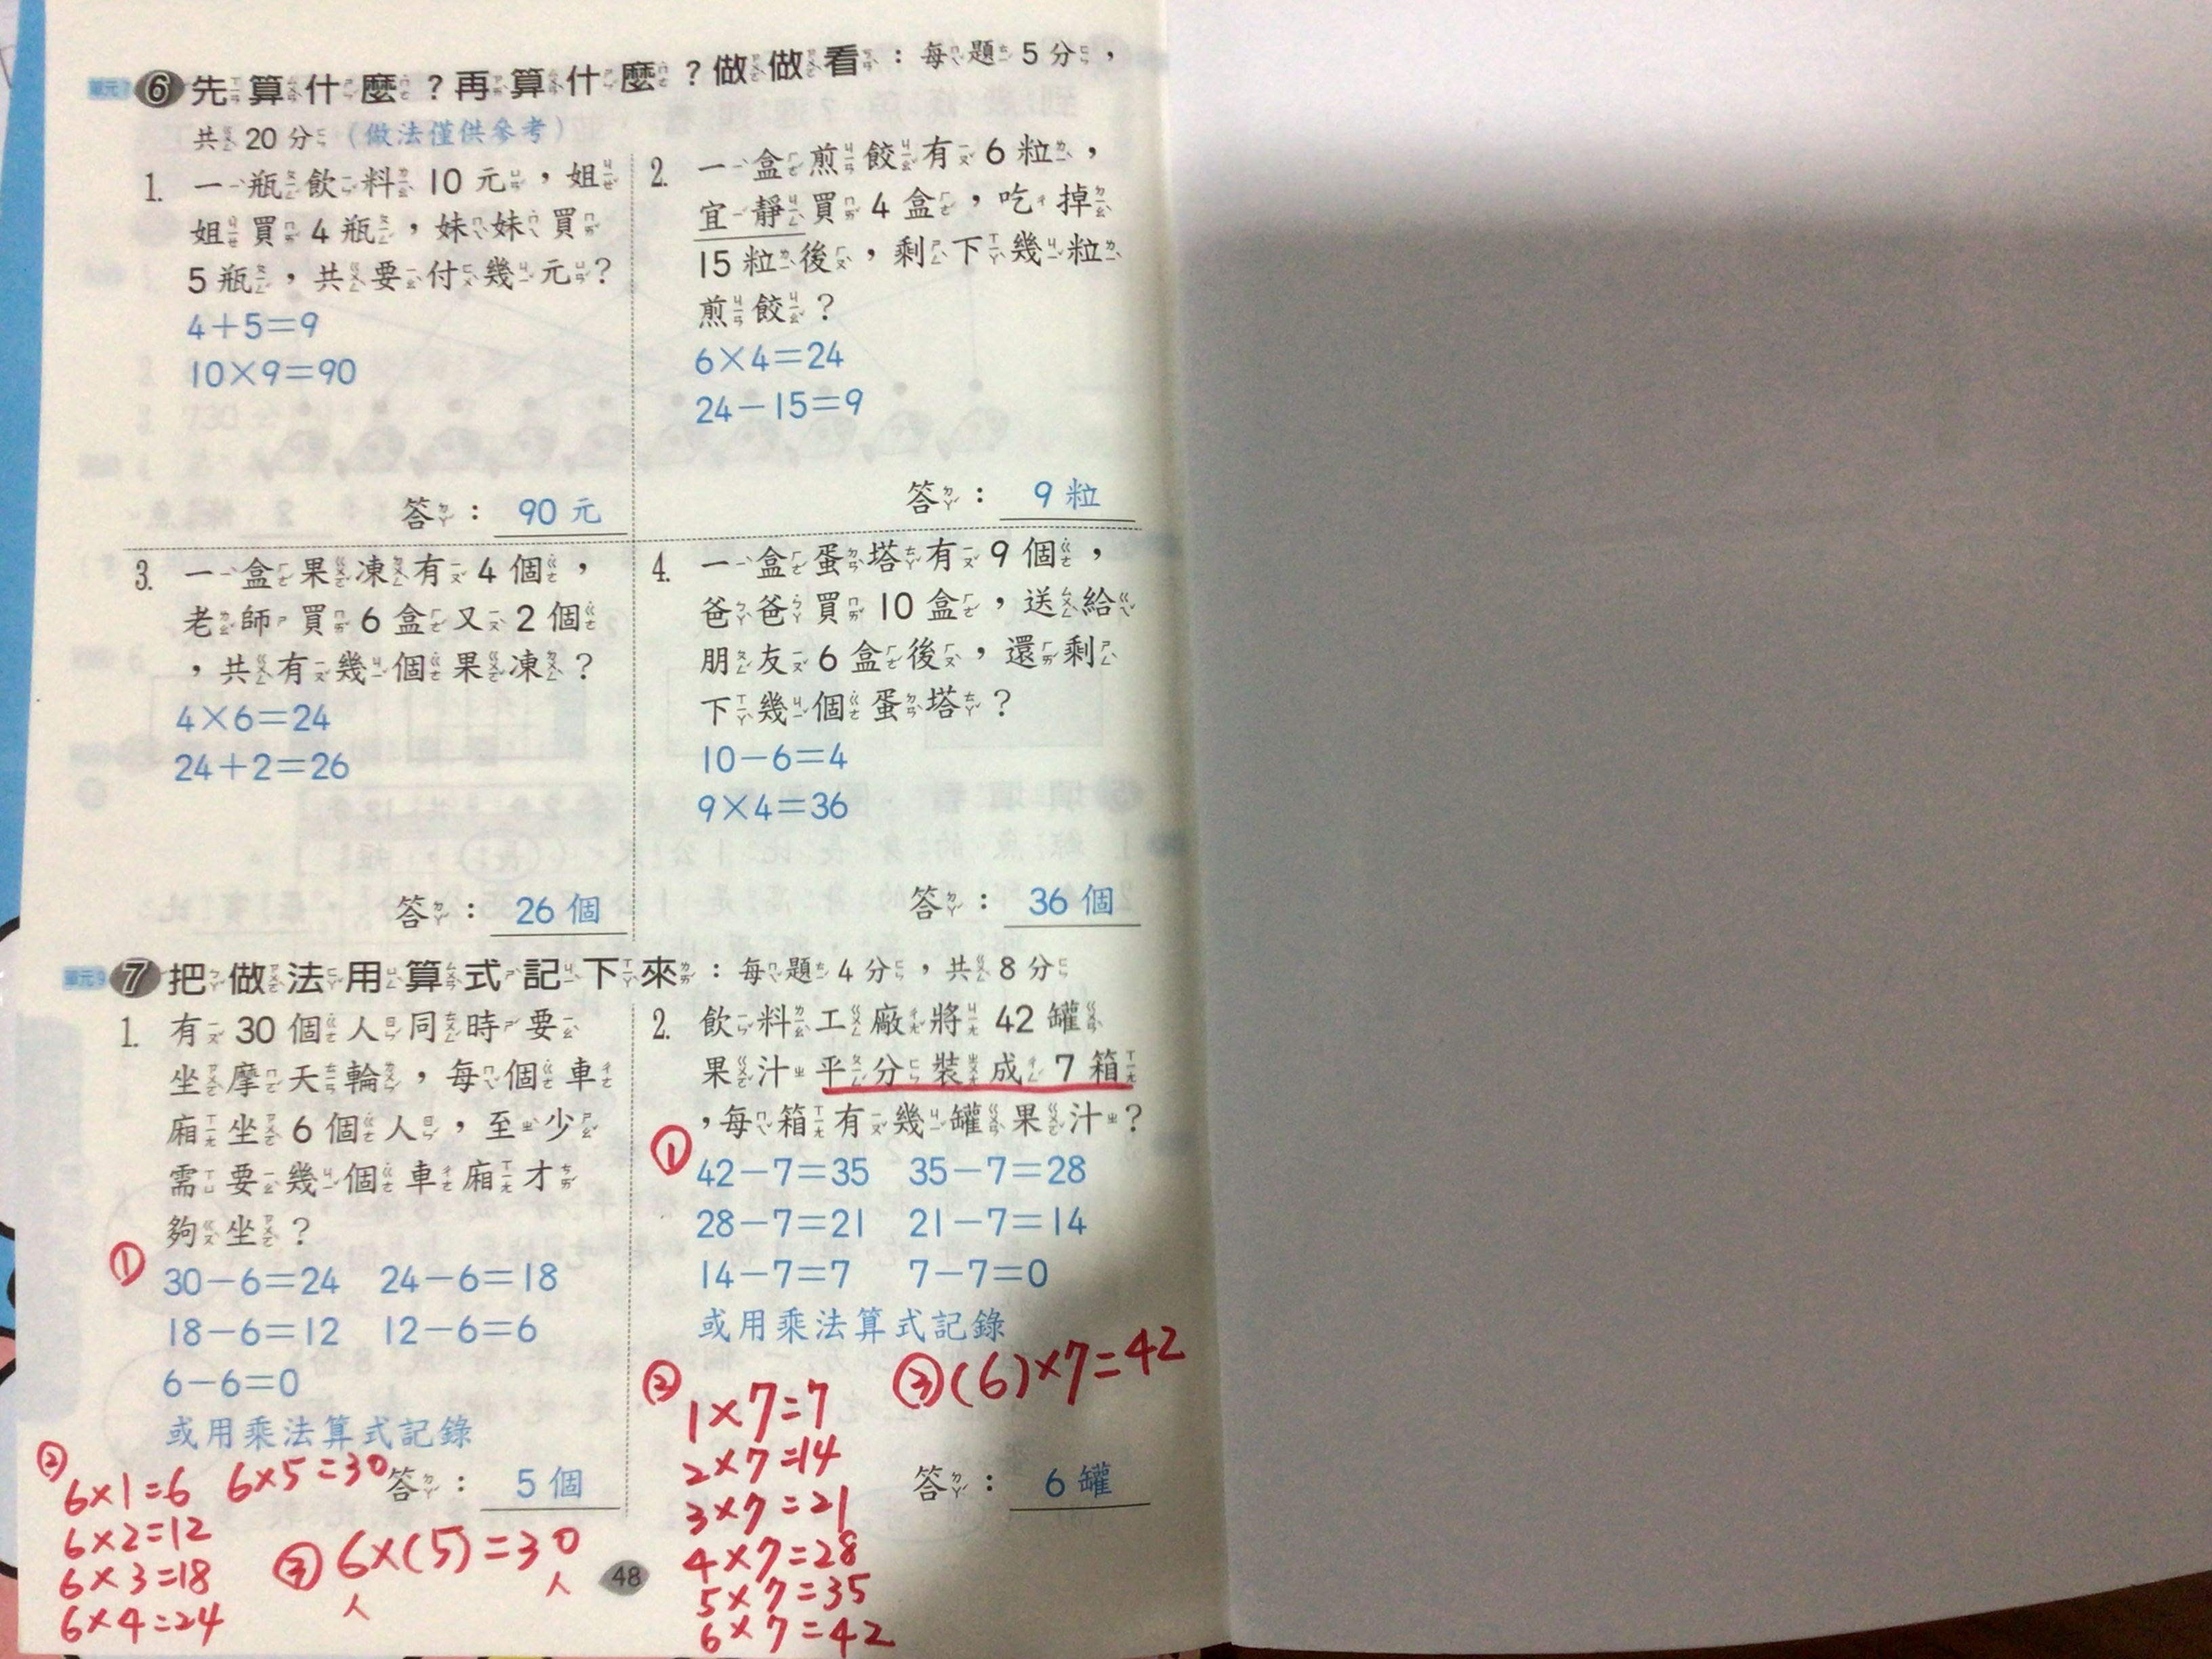 單元7 6 先算什麼?再算什麼?做做看:每題5分,
共20分(做法僅供參考)
1. 一瓶飲料10元,姐
姐買4瓶,妹妹買
5瓶,共要付幾元?
4+5=9
10×9=90
答: 90元
2. 一盒煎餃有6粒,
宜靜買4盒,吃掉
15粒後,剩下幾粒
煎餃?
6×4=24
24-15=9
答: 9粒
3. 一盒果凍有4個,
老師買6盒又2個
,共有幾個果凍?
4×6=24
24+2=26
答: 26個
4. 一盒蛋塔有9個,
爸爸買10盒,送給
朋友6盒後,還剩
下幾個蛋塔?
10-6=4
9×4=36
答: 36個
單元9 7 把做法用算式記下來:每題4分,共8分
1. 有30個人同時要
坐摩天輪,每個車
廂坐6個人,至少
需要幾個車廂才
夠坐?
① 30-6=24 24-6=18
18-6=12 12-6=6
6-6=0
或用乘法算式記錄
② 6×1=6 6×5=30
6×2=12
6×3=18
6×4=24
③ 6×(5)=30
人 人
答: 5個
2. 飲料工廠將42罐
果汁平分裝成7箱
,每箱有幾罐果汁?
① 42-7=35 35-7=28
28-7=21 21-7=14
14-7=7 7-7=0
或用乘法算式記錄
② 1×7=7
2×7=14
3×7=21
4×7=28
5×7=35
6×7=42
③ (6)×7=42
答: 6罐
48